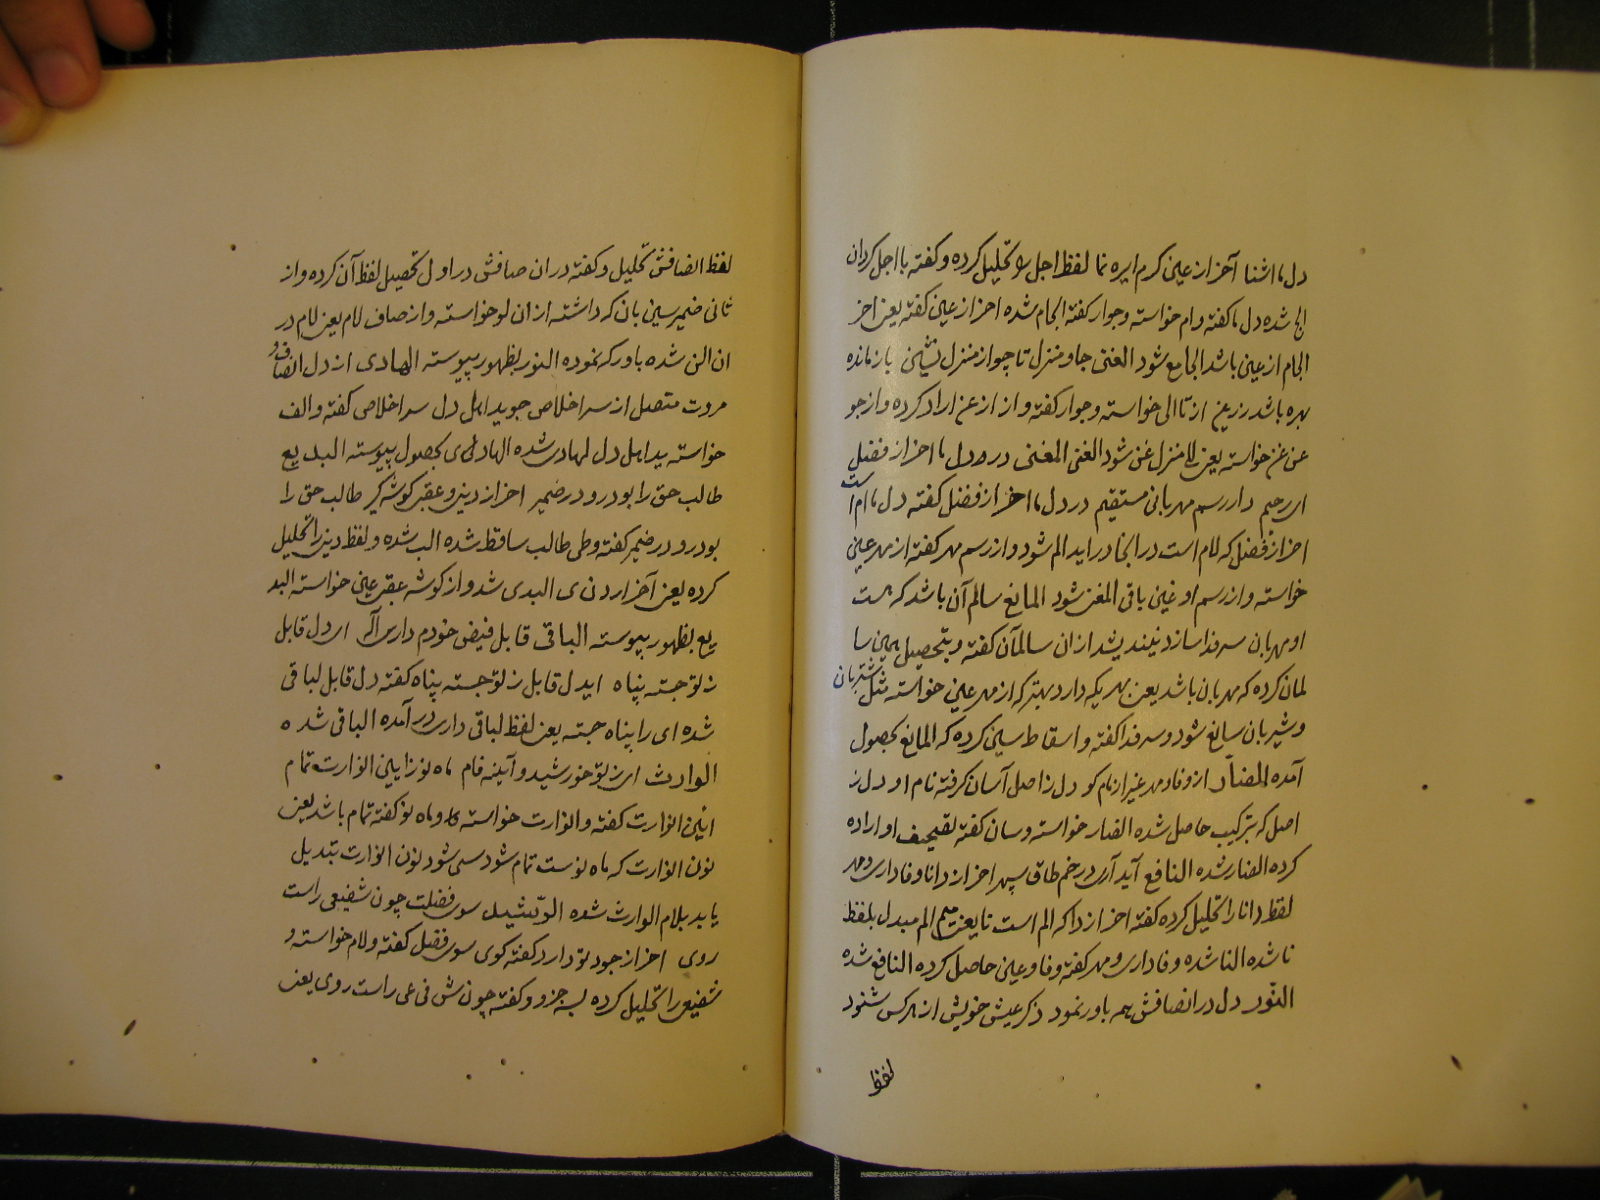 دل ما اثنا آخر از عین کرم ایره نما لفظ اجل را تحلیل کرده و کفته با اجل کردان
الج شده دل ما کفته و ام خواسته و جوار کفته الجام شده احراز عین کفته یعنی اخر
الجام از عین باشد الجامع شود الغنی جا و منزل تا چو از منزل نشین باز مانده
بهره باشد زر عین از تا الی خواسته و جوار کفته و از از عن اراد کرده و از جو
عن غن خواسته یعن للا منزل غن شود الغنی المغنی در و دل ما احراز فضل
ای رحیم دار رسم مهربانی مستقیم در دل ما اخر از فضل کفته دل ما ام است
احراز فضل که لام است در انجا دراید الم شود و از رسم مهر کفته از مهر عین
خواسته و از رسم او غین باقی المغن شود المانع سالم آن باشد که هست
او مهربان سر فدا سازد نیندیشد از ان سالمآن کفته و بتحصیل همین سا
لمان کرده که مهربان باشد یعن مهر یکه دارد بهتر که از مهر عین خواسته مثل شتربان
و شیربان سانع شود و سر فدا کفته و اسقاط سین کرده که المانع بحصول
آمده المضار از وفا و مهر غیر از نام کو دل ز اصل آسان کرفته نام او دل ز
اصل که بترکیب حاصل شده الضار خواسته و سان کفته تقیحیف او اراده
کرده الضار شده النافع آید آری در خم طاق سپهر احراز دانا وفاداری و مهر
لفظ دانا را تحلیل کرده کفته احراز دا که الم است نا یعن میم الم مبدل بلفظ
نا شده النا شده وفاداری و مهر کفته وفا و عین حاصل کرده النافع شده
النور دل در انصافش همه باور نمود ذکر عیش خویش از هر کس شنود
لفظ
لفظ انصافش تحلیل و کفته در ان صافش در اول تحصیل لفظ آن کرده و از
ثانی ضمیر سین بان که داشته از ان لو خواسته و از صاف لام یعن لام در
ان الن شده باور که نموده النور بظهور پیوسته الهادی از دل انصاف و
مروت متصل از سر اخلاص جوید اهل دل سر اخلاص کفته و الف
خواسته ید اهل دل لهادی شده الهادی بحصول پیوسته البدیع
طالب حق را بود رو در ضمیر احراز دین و عقبی کوشه کیر طالب حق را
بود رو در ضمیر کفته و طی طالب ساقط شده الب شده و لفظ دین را تحلیل
کرده یعن آخر ار د ن ی البدی شد و از کوشه عقبی عین خواسته البد
یع بظهور پیوسته الباقی قابل فیض خودم داری اگر ای دل قابل
ز تو جسته پناه ایدل قابل ز تو جسته پناه کفته دل قابل لباقی
شده ای را پناه جسته یعن لفظ لباقی داری در آمده الباقی شده
الوارث ای ز تو خورشید و آیینه فام ماه نو زایین الوارت تمام
ایین الوارت کفته و الوارت خواسته که و ماه نو کفته تمام باشد یعن
نون الوارت که ماه نوست تمام شود سی شود نون الوارت تبدیل
یابد بلام الوارث شده الرشید سوی فضلت چون شفیعی راست
روی احراز جود تو دارد کفته کوی سوی فضل کفته و لام خواسته و
شفیعی را تحلیل کرده بسه جزو و کفته چون ش فی عی راست روی یعن